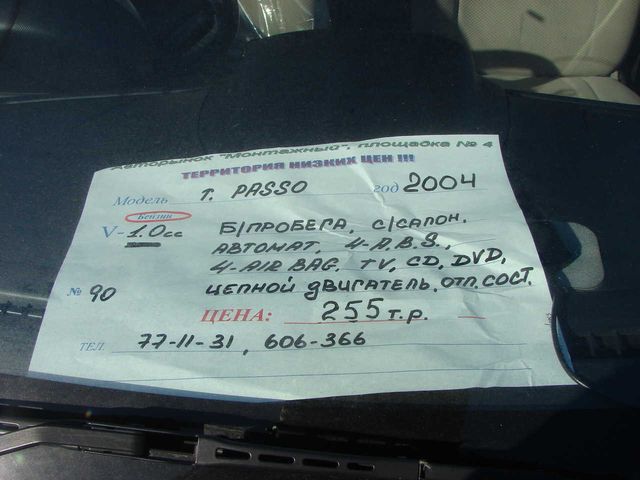 Авторынок "Монтажный", площадка № 4
ТЕРРИТОРИЯ НИЗКИХ ЦЕН !!!
Модель T. PASSO год 2004
Бензин
V- 1.0cc Б/ПРОБЕГА, С/САЛОН,
АВТОМАТ, 4-A.B.S.,
4-AIR BAG, TV, CD, DVD,
№ 90 ЦЕПНОЙ ДВИГАТЕЛЬ, ОТЛ. СОСТ.
ЦЕНА: 255 т.р.
ТЕЛ. 77-11-31, 606-366